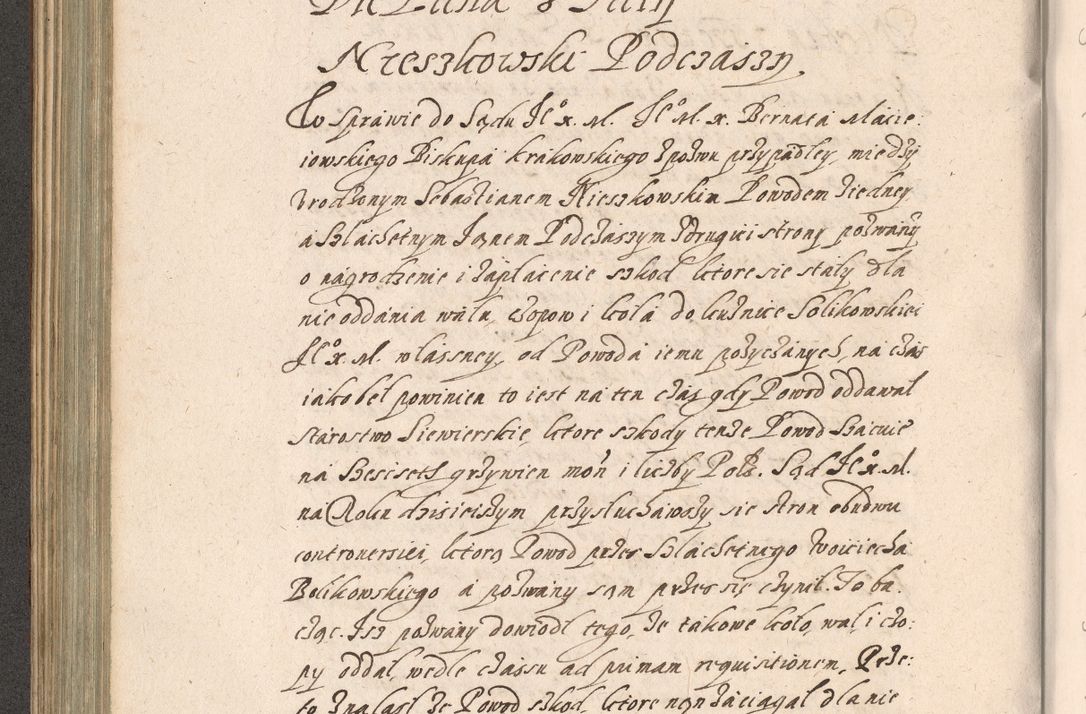 Die Lunæ 8 Julij
Nieszkowski Podczaszy
W sprawie do Sądu Jº x. M. Jº M. x. Bernata Macie:
iowskiego Biskupa Krakowskiego z pozwu przypadłey, miedzy
Vrodzonym Sebastianem Nieszkowskim Powodem z iedney
a Szlachetnym Janem Podczaszym z drugiei strony pozwany
o nagrodzenie i zapłacenie szkod, ktore sie stały dla
nieoddania wału, czopow i koła do kuźnice Solikowskiei
Jº x. M. własney, od Powoda iemu pozyczanych, na czas
iako beł powinien to iest na ten czas gdy Powod oddawał
starostwo Siewierskie, ktore szkody tenze Powod szacuie
na szesciset grzywien moń i liczby Pols. Sąd Jº x. M.
na Roku dzisieiszym przysłuchawszy sie stron obudwu
controuersiei, ktorą Powod przez Szlachetnego Woiciecha
Bolikowskiego a pozwany sąm przez się czynił. To ba:
cząc. Isz pozwany dowiodł tego, ze takowe koło, wał, i czo:
py oddał, wedle czassu ad primam requisitionem, Prze:
to znalasł ze Powod szkod, ktore nań zaciągał dla nie